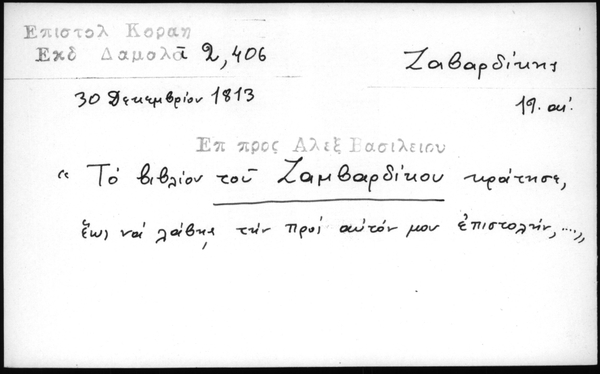 Επιστολ Κοραη
Εκδ Δαμαλᾶ 2,406
Ζαβαρδίκης
30 Δεκεμβρίου 1813
19. αἰ.
Επ προς Αλεξ Βασιλειου
“Τὸ βιβλίον τοῦ Ζαμβαρδίκου κράτησε,
ἕως νά λάβῃς τήν πρός αὐτόν μου ἐπιστολήν, ....„